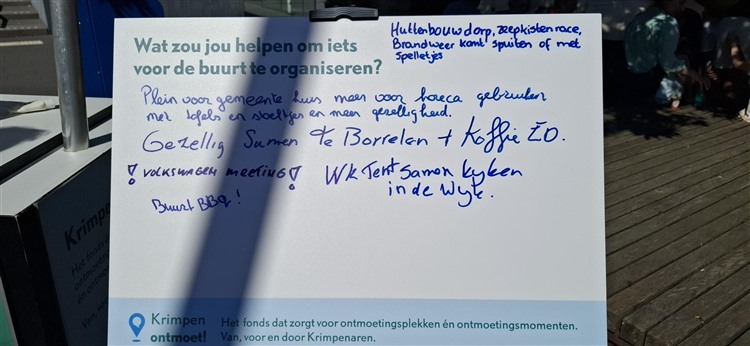 Wat zou jou helpen om iets
voor de buurt te organiseren?
Huttenbouwdorp, zeepkistenrace,
Brandweer komt spuiten of met
spelletjes
Plein voor gemeente huis meer voor horeca gebruiken
met tafels en stoeltjes en meer gezelligheid.
Gezellig Samen te Borrelen + Koffie ZO.
! VOLKSWAGEN MEETING !
Wk Tent Samen kyken
in de Wyk.
Buurt BBQ!
Krimpen
ontmoet!
Het fonds dat zorgt voor ontmoetingsplekken én ontmoetingsmomenten.
Van, voor en door Krimpenaren.
Krimpen
Het fonds
Van, voor